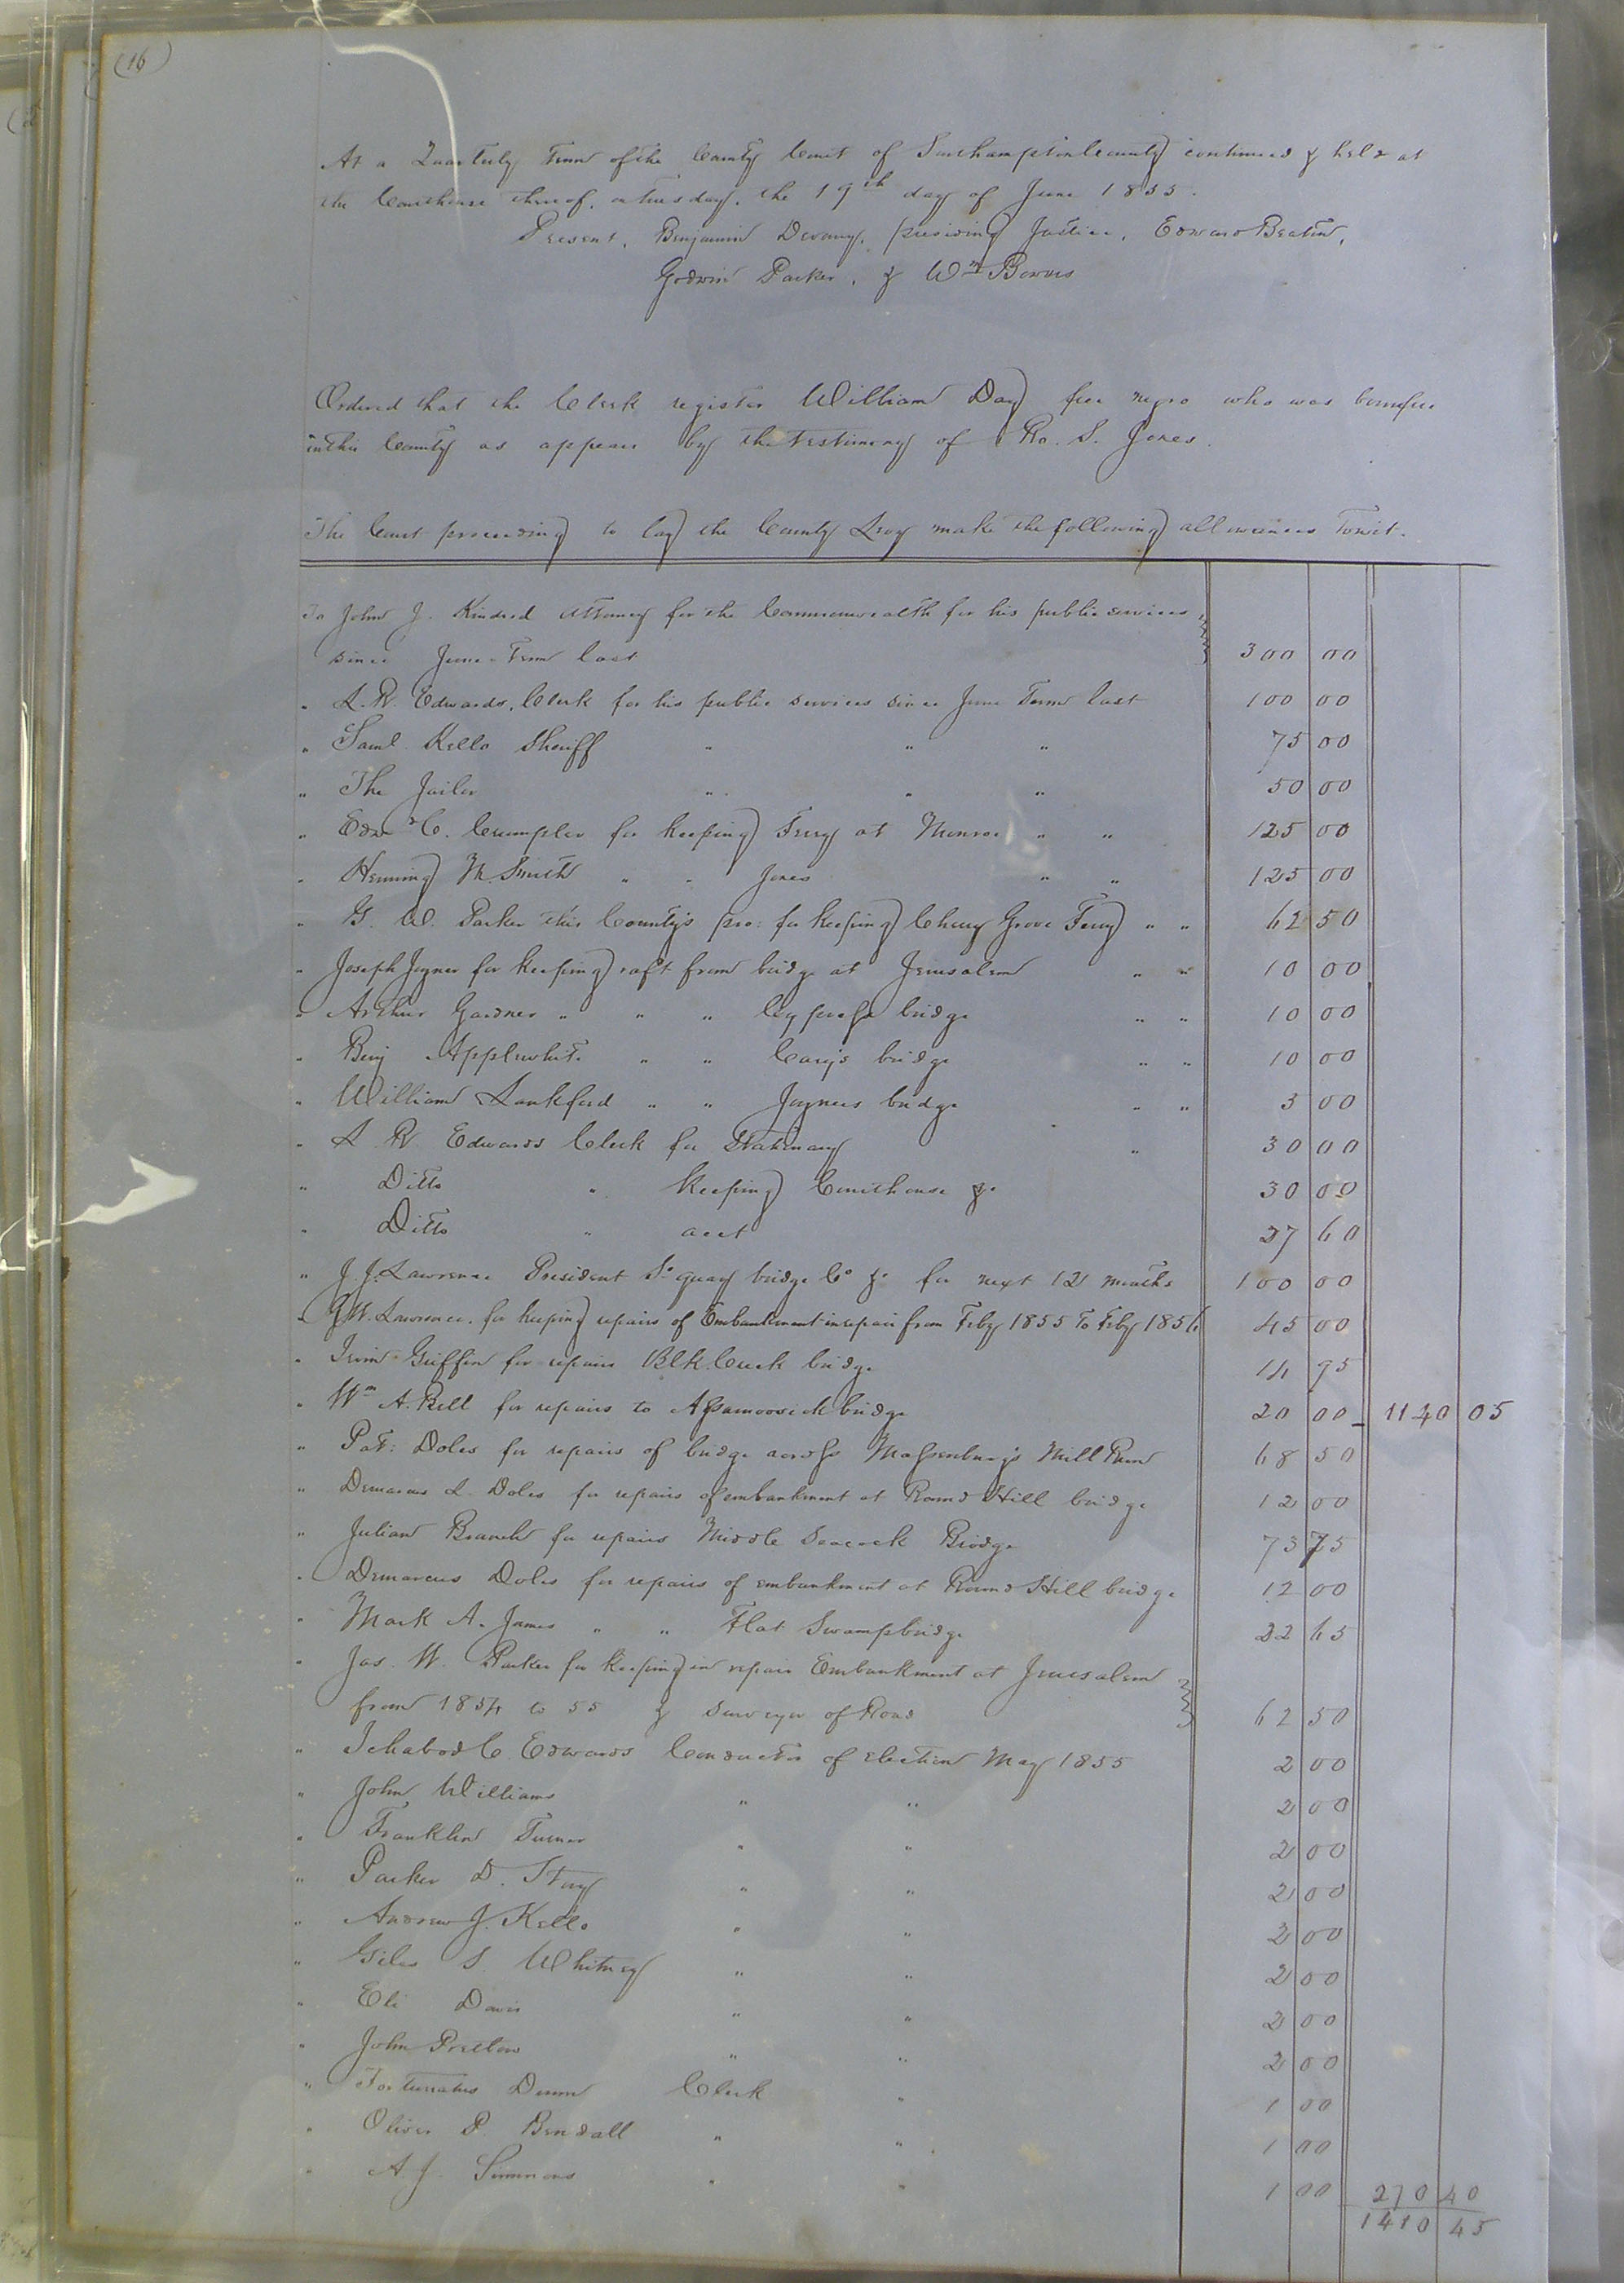 (16)
At a Quarterly Term of the County Court of Southampton County continued & held at
the Courthouse thereof, on Tuesday, the 19th day of June 1855.
Present, Benjamin Devany, presiding Justice, Edward Beaton,
Godwin Parker, & Wm Bowers
Ordered that the Clerk register William Day free negro who was born free
in this County as appears by the testimony of Ro. S. Jones.
The Court proceeding to lay the County Levy make the following allowances Towit.
To John J. Kindred Attorney for the Commonwealth for his public services
since June Term last 300 00
" L. R. Edwards, Clerk for his public services since June Term last 100 00
" Saml. Kello Sheriff " " " 75 00
" The Jailor " " " 50 00
" Edwd C. Crumpler for keeping Ferry at Monroe " " 125 00
" Henning M. Smith " " Jones " " 125 00
" G. W. Parker this County's pro: for keeping Cherry Grove Ferry " " 62 50
" Joseph Joyner for keeping raft from bridge at Jerusalem " " 10 00
" Arthur Gardner " " " Cypress bridge " " 10 00
" Benj Applewhite " " Cary's bridge " " 10 00
" William Lankford " " Joyners bridge " " 3 00
" L R Edwards Clerk for Stationary " 30 00
" Ditto " keeping Courthouse &c 30 00
" Ditto " acct 27 60
" J. J. Lawrence President So quay bridge Co &c for next 12 months 100 00
" G W. Lawrence. for keeping repairs of Embankment in repair from Feby 1855 To Feby 1856 45 00
" Irvin Griffin for repairs Blk. Creek bridge 14 95
" Wm A. Bell for repairs to Assamoosick bridge 20 00 1140 05
" Pat: Doles for repairs of bridge across Massenburg's Mill Run 68 50
" Demarcus L. Doles for repairs of embankment at Round Hill bridge 12 00
" Julian Branch for repairs Middle Seacock Bridge 73 75
" Demarcus Doles for repairs of embankment at Round Hill bridge 12 00
" Mark A. James " " Flat Swamp bridge 22 65
" Jas. W. Parker for keeping in repair Embankment at Jerusalem
from 1854 to 55 & Surveyor of Road 62 50
" Ichabod C. Edwards Conductor of Election May 1855 2 00
" John Williams " " 2 00
" Franklin Turner " " 2 00
" Parker D. " " 2 00
" Andrew J. Kello " " 2 00
" Giles S. Whitney " " 2 00
" Eli Davis " " 2 00
" John Pretlow " " 2 00
" Fortunatus Dunn Clerk " 1 00
" Oliver P. Bendall " " 1 00
" A J. Simmons " " 1 00 270 40
1410 45